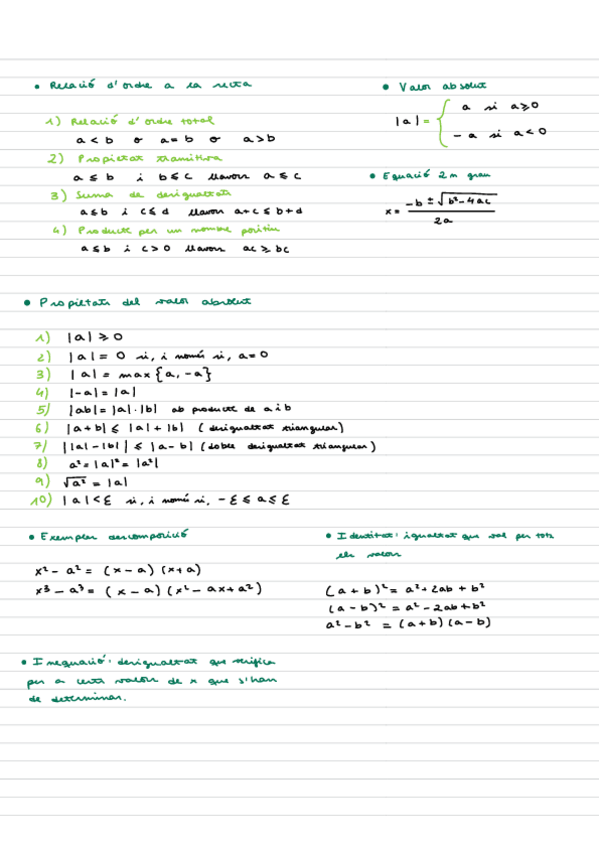 • Relació d'ordre a la recta
1) Relació d'ordre total
a < b o a = b o a > b
2) Propietat transitiva
a ≤ b i b ≤ c llavors a ≤ c
3) Suma de desigualtats
a ≤ b i c ≤ d llavors a+c ≤ b+d
4) Producte per un nombre positiu
a ≤ b i c > 0 llavors ac ≥ bc
• Valor absolut
|a| = { a si a ≥ 0
- a si a < 0
• Equació 2n grau
x = (-b ± √(b² - 4ac)) / 2a
• Propietats del valor absolut
1) |a| ≥ 0
2) |a| = 0 si, i només si, a = 0
3) |a| = max {a, -a}
4) |-a| = |a|
5) |ab| = |a| · |b| ab producte de a i b
6) |a + b| ≤ |a| + |b| (desigualtat triangular)
7) ||a| - |b|| ≤ |a - b| (doble desigualtat triangular)
8) a² = |a|² = |a²|
9) √a² = |a|
10) |a| < ε si, i només si, -ε ≤ a ≤ ε
• Exemples descomposició
x² - a² = (x - a) (x + a)
x³ - a³ = (x - a) (x² - ax + a²)
• Identitat: igualtat que val per tots
els valors
(a + b)² = a² + 2ab + b²
(a - b)² = a² - 2ab + b²
a² - b² = (a + b) (a - b)
• Inequació: desigualtat que verifica
per a certs valors de x que s'han
de determinar.